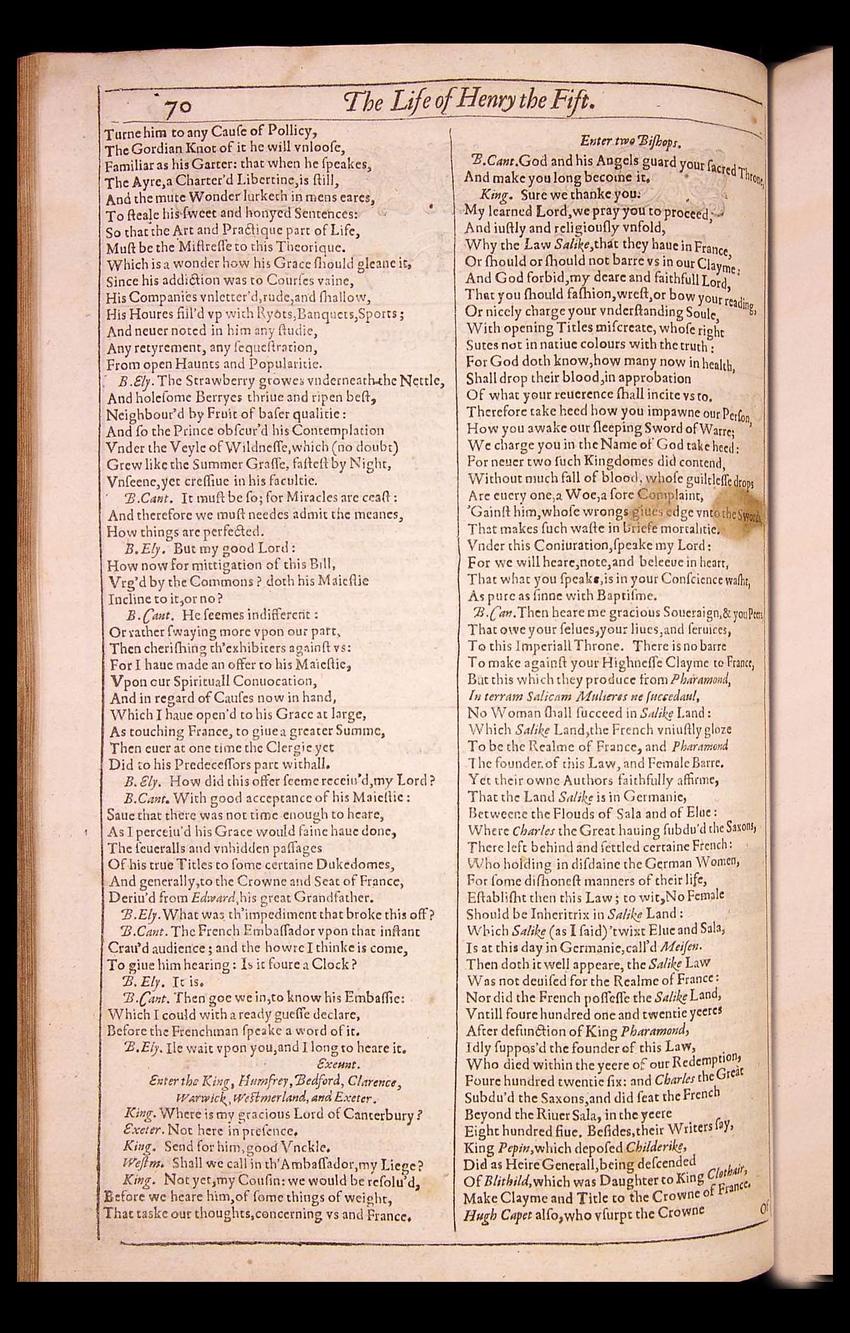 70
The Life of Henry the Fift.
Turne him to any Cauſe of Pollicy,
The Gordian Knot of it he will vnlooſe,
Familiar as his Garter: that when he ſpeakes,
The Ayre,a Charter'd Libertine,is ſtill,
And the mute Wonder lurketh in mens eares,
To ſteale his ſweet and honyed Sentences:
So that the Art and Practique part of Life,
Muſt be the Miſtreſſe to this Theorique.
Which is a wonder how his Grace ſhould gleane it,
Since his addiction was to Courſes vaine,
His Companies vnletter'd,rude,and ſhallow,
His Houres fill'd vp with Ryots,Banquets,Sports;
And neuer noted in him any ſtudie,
Any retyrement, any ſequeſtration,
From open Haunts and Popularitie.
B.Ely. The Strawberry growes vnderneath the Nettle,
And holeſome Berryes thriue and ripen beſt,
Neighbour'd by Fruit of baſer qualitie:
And ſo the Prince obſcur'd his Contemplation
Vnder the Veyle of Wildneſſe,which (no doubt)
Grew like the Summer Graſſe, faſteſt by Night,
Vnſeene,yet creſſiue in his facultie.
B.Cant. It muſt be ſo; for Miracles are ceaſt:
And therefore we muſt needes admit the meanes,
How things are perfected.
B.Ely. But my good Lord:
How now for mittigation of this Bill,
Vrg'd by the Commons? doth his Maieſtie
Incline to it,or no?
B.Cant. He ſeemes indifferent:
Or rather ſwaying more vpon our part,
Then cheriſhing th'exhibiters againſt vs:
For I haue made an offer to his Maieſtie,
Vpon our Spirituall Conuocation,
And in regard of Cauſes now in hand,
Which I haue open'd to his Grace at large,
As touching France, to giue a greater Summe,
Then euer at one time the Clergie yet
Did to his Predeceſſors part withall.
B.Ely. How did this offer ſeeme receiu'd,my Lord?
B.Cant. With good acceptance of his Maieſtie:
Saue that there was not time enough to heare,
As I perceiu'd his Grace would faine haue done,
The ſeueralls and vnhidden paſſages
Of his true Titles to ſome certaine Dukedomes,
And generally,to the Crowne and Seat of France,
Deriu'd from Edward,his great Grandfather.
B.Ely. What was th'impediment that broke this off?
B.Cant. The French Embaſſador vpon that inſtant
Crau'd audience; and the howre I thinke is come,
To giue him hearing: Is it foure a Clock?
B.Ely. It is.
B.Cant. Then goe we in,to know his Embaſſie:
Which I could with a ready gueſſe declare,
Before the Frenchman ſpeake a word of it.
B.Ely. Ile wait vpon you,and I long to heare it.
Exeunt.
Enter the King, Humfrey, Bedford, Clarence,
Warwick, Weſtmerland, and Exeter.
King. Where is my gracious Lord of Canterbury?
Exeter. Not here in preſence.
King. Send for him,good Vnckle.
Weſtm. Shall we call in th'Ambaſſador,my Liege?
King. Not yet,my Couſin: we would be reſolu'd,
Before we heare him,of ſome things of weight,
That taske our thoughts,concerning vs and France.
Enter two Biſhops.
B.Cant. God and his Angels guard your ſacred Throne,
And make you long become it.
King. Sure we thanke you.
My learned Lord,we pray you to proceed,
And iuſtly and religiouſly vnfold,
Why the Law Salike,that they haue in France,
Or ſhould or ſhould not barre vs in our Clayme:
And God forbid,my deare and faithfull Lord,
That you ſhould faſhion,wreſt,or bow your reading,
Or nicely charge your vnderſtanding Soule,
With opening Titles miſcreate, whoſe right
Sutes not in natiue colours with the truth:
For God doth know,how many now in health,
Shall drop their blood,in approbation
Of what your reuerence ſhall incite vs to.
Therefore take heed how you impawne our Perſon,
How you awake our ſleeping Sword of Warre;
We charge you in the Name of God take heed:
For neuer two ſuch Kingdomes did contend,
Without much fall of blood, whoſe guiltleſſe drops
Are euery one,a Woe,a ſore Complaint,
'Gainſt him,whoſe wrongs giues edge vnto the Swords,
That makes ſuch waſte in briefe mortalitie.
Vnder this Coniuration,ſpeake my Lord:
For we will heare,note,and beleeue in heart,
That what you ſpeake,is in your Conſcience waſht,
As pure as ſinne with Baptiſme.
B.Can. Then heare me gracious Soueraign,& you Peers
That owe your ſelues,your liues,and ſeruices,
To this Imperiall Throne. There is no barre
To make againſt your Highneſſe Clayme to France,
But this which they produce from Pharamond,
In terram Salicam Mulieres ne ſuccedaul,
No Woman ſhall ſucceed in Salike Land:
Which Salike Land,the French vniuſtly gloze
To be the Realme of France, and Pharamond
The founder of this Law, and Female Barre.
Yet their owne Authors faithfully affirme,
That the Land Salike is in Germanie,
Betweene the Flouds of Sala and of Elue:
Where Charles the Great hauing ſubdu'd the Saxons,
There left behind and ſettled certaine French:
Who holding in diſdaine the German Women,
For ſome diſhoneſt manners of their life,
Eſtabliſht then this Law; to wit,No Female
Should be Inheritrix in Salike Land:
Which Salike (as I ſaid) 'twixt Elue and Sala,
Is at this day in Germanie,call'd Meiſen.
Then doth it well appeare, the Salike Law
Was not deuiſed for the Realme of France:
Nor did the French poſſeſſe the Salike Land,
Vntill foure hundred one and twentie yeeres
After defunction of King Pharamond,
Idly ſuppos'd the founder of this Law,
Who died within the yeere of our Redemption,
Foure hundred twentie ſix: and Charles the Great
Subdu'd the Saxons,and did ſeat the French
Beyond the Riuer Sala, in the yeere
Eight hundred fiue. Beſides,their Writers ſay,
King Pepin,which depoſed Childerike,
Did as Heire Generall,being deſcended
Of Blithild,which was Daughter to King Clothair,
Make Clayme and Title to the Crowne of France.
Hugh Capet alſo,who vſurpt the Crowne
Of